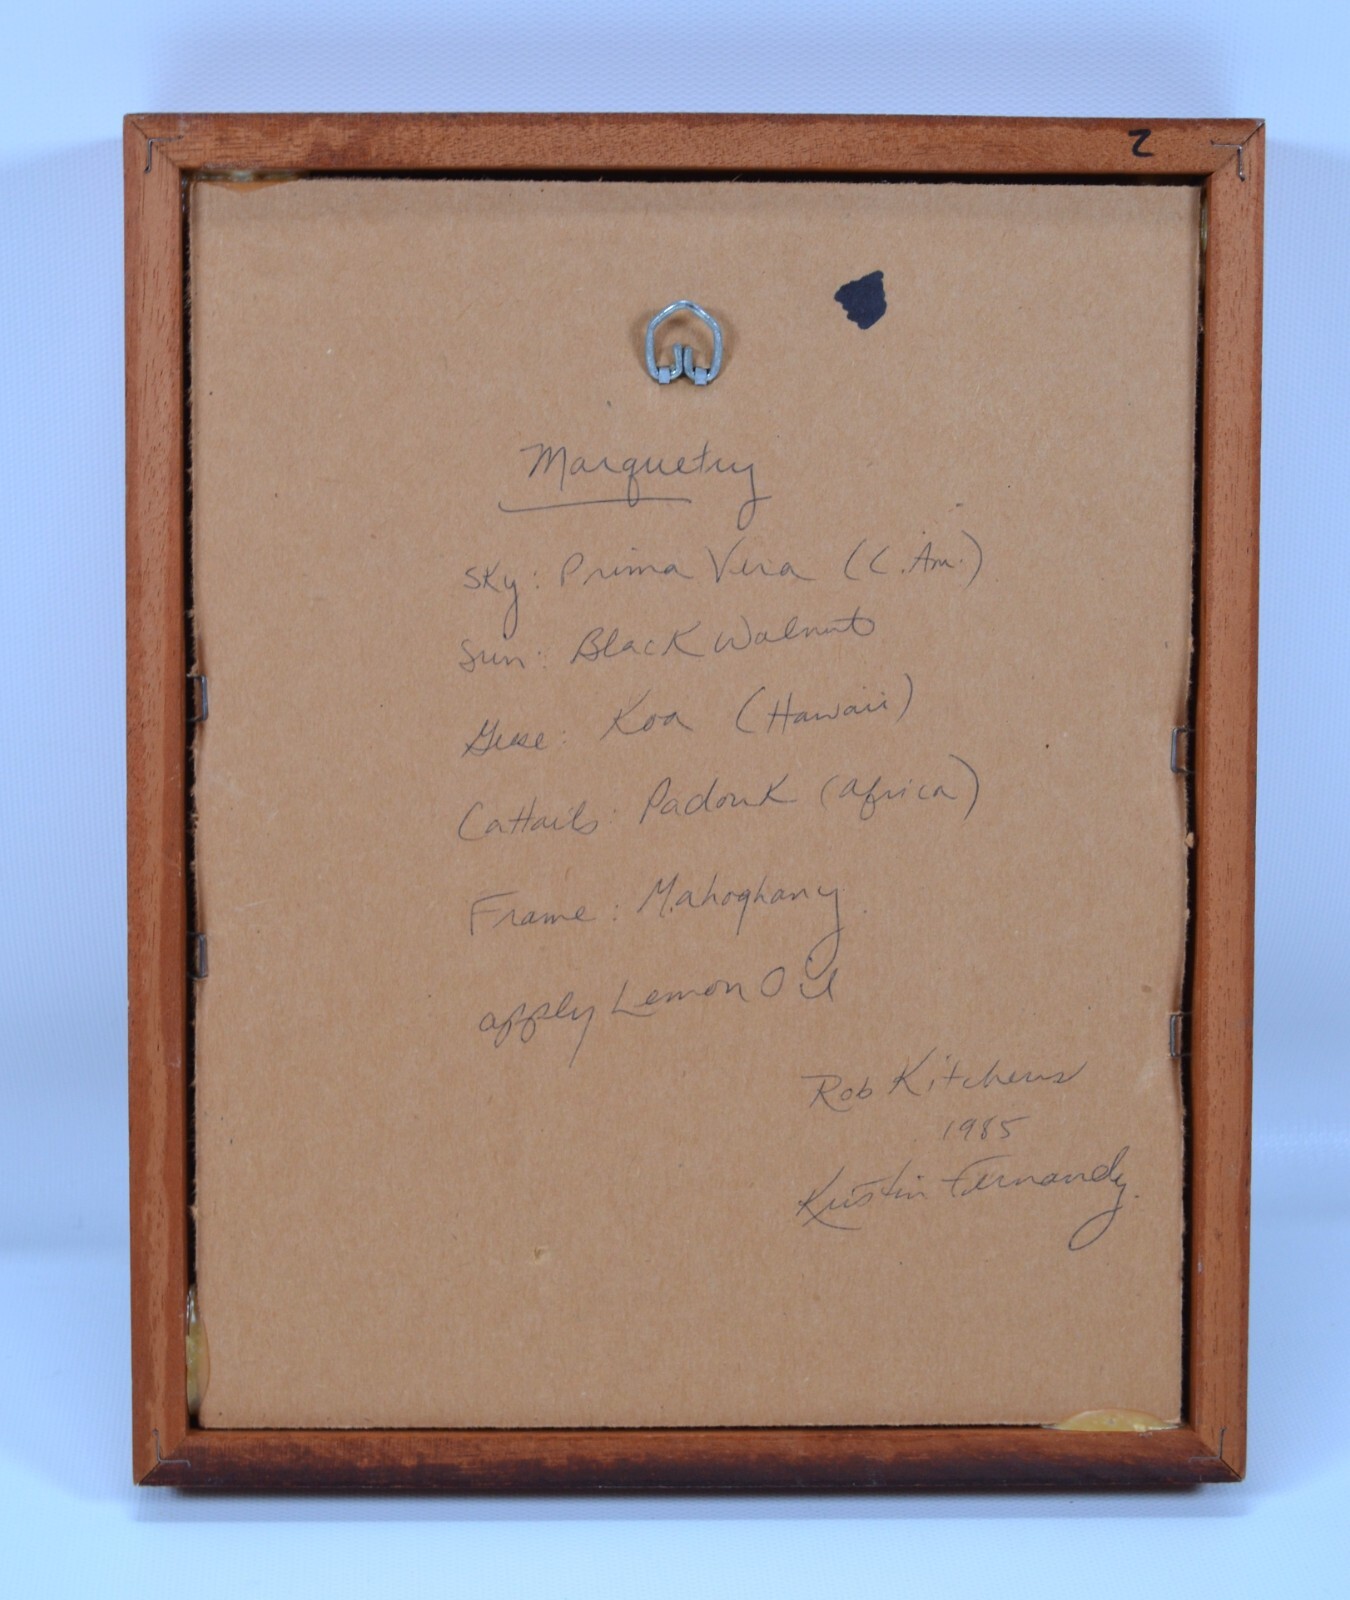 2
Marquetry
Sky: Prima Vera (C. Am.)
Sun: Black Walnut
Geese: Koa (Hawaii)
Cattails: Padouk (Africa)
Frame: Mahoghany
apply Lemon Oil
Rob Kitchens
1985
Kristin Fernandy